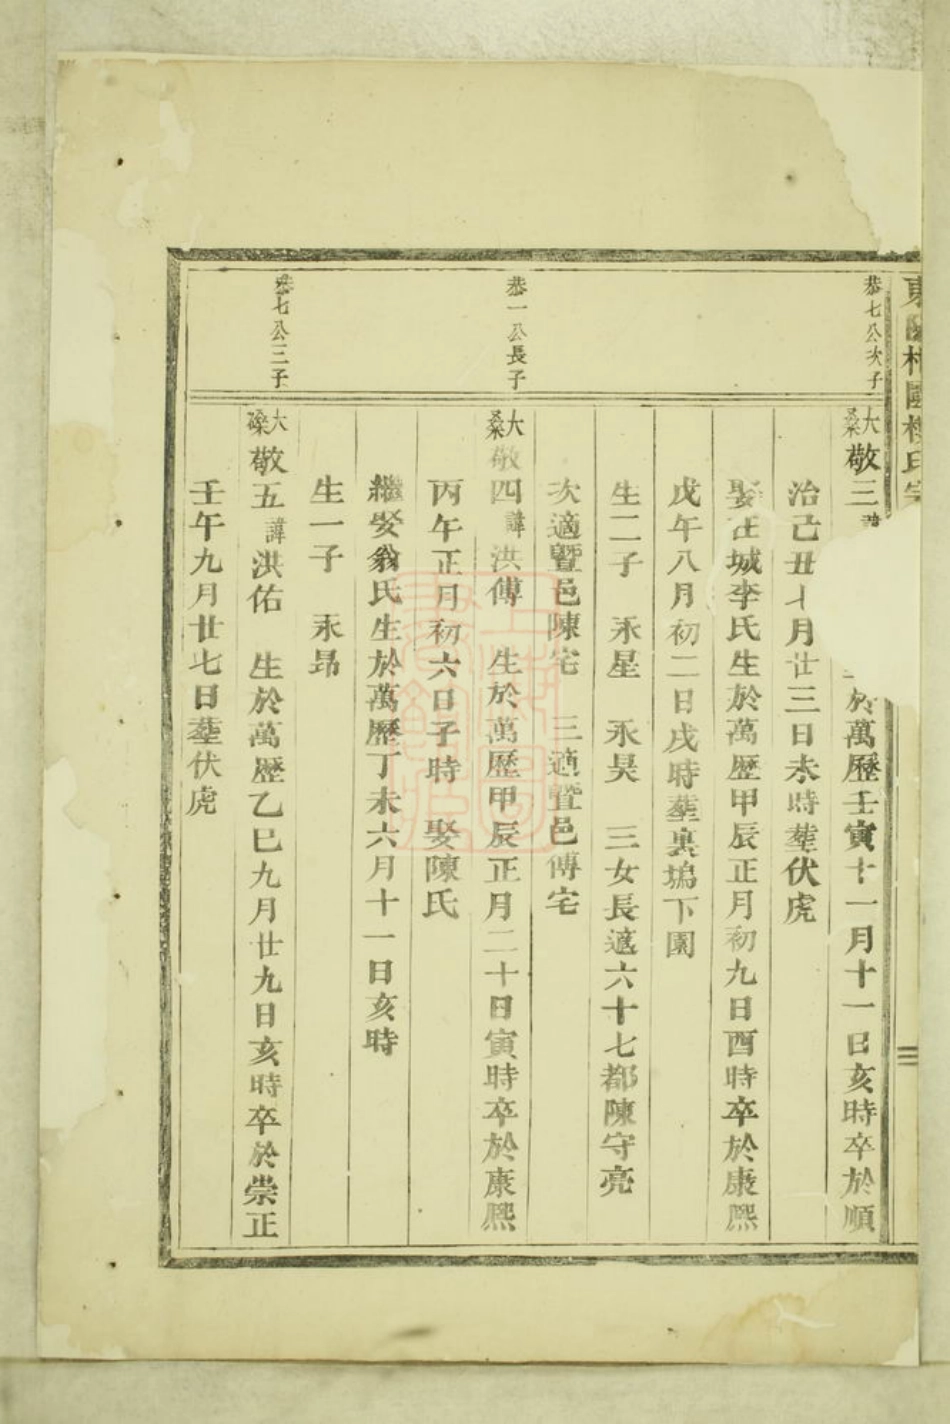 恭七公次子
大桑敬三諱
於萬歷壬寅十一月十一日亥時卒於順
治己丑七月廿三日未時塟伏虎
娶在城李氏生於萬歷甲辰正月初九日酉時卒於康熙
戊午八月初二日戌時塟裏塢下園
生二子 永星 永昊 三女長適六十七都陳守亮
次適暨邑陳宅 三適暨邑傅宅
恭一公長子
大桑敬四諱洪傅 生於萬歷甲辰正月二十日寅時卒於康熙
丙午正月初六日子時 娶陳氏
繼娶翁氏生於萬歷丁未六月十一日亥時
生一子 永昂
恭七公三子
大磉敬五諱洪佑 生於萬歷乙巳九月廿九日亥時卒於崇正
壬午九月廿七日塟伏虎